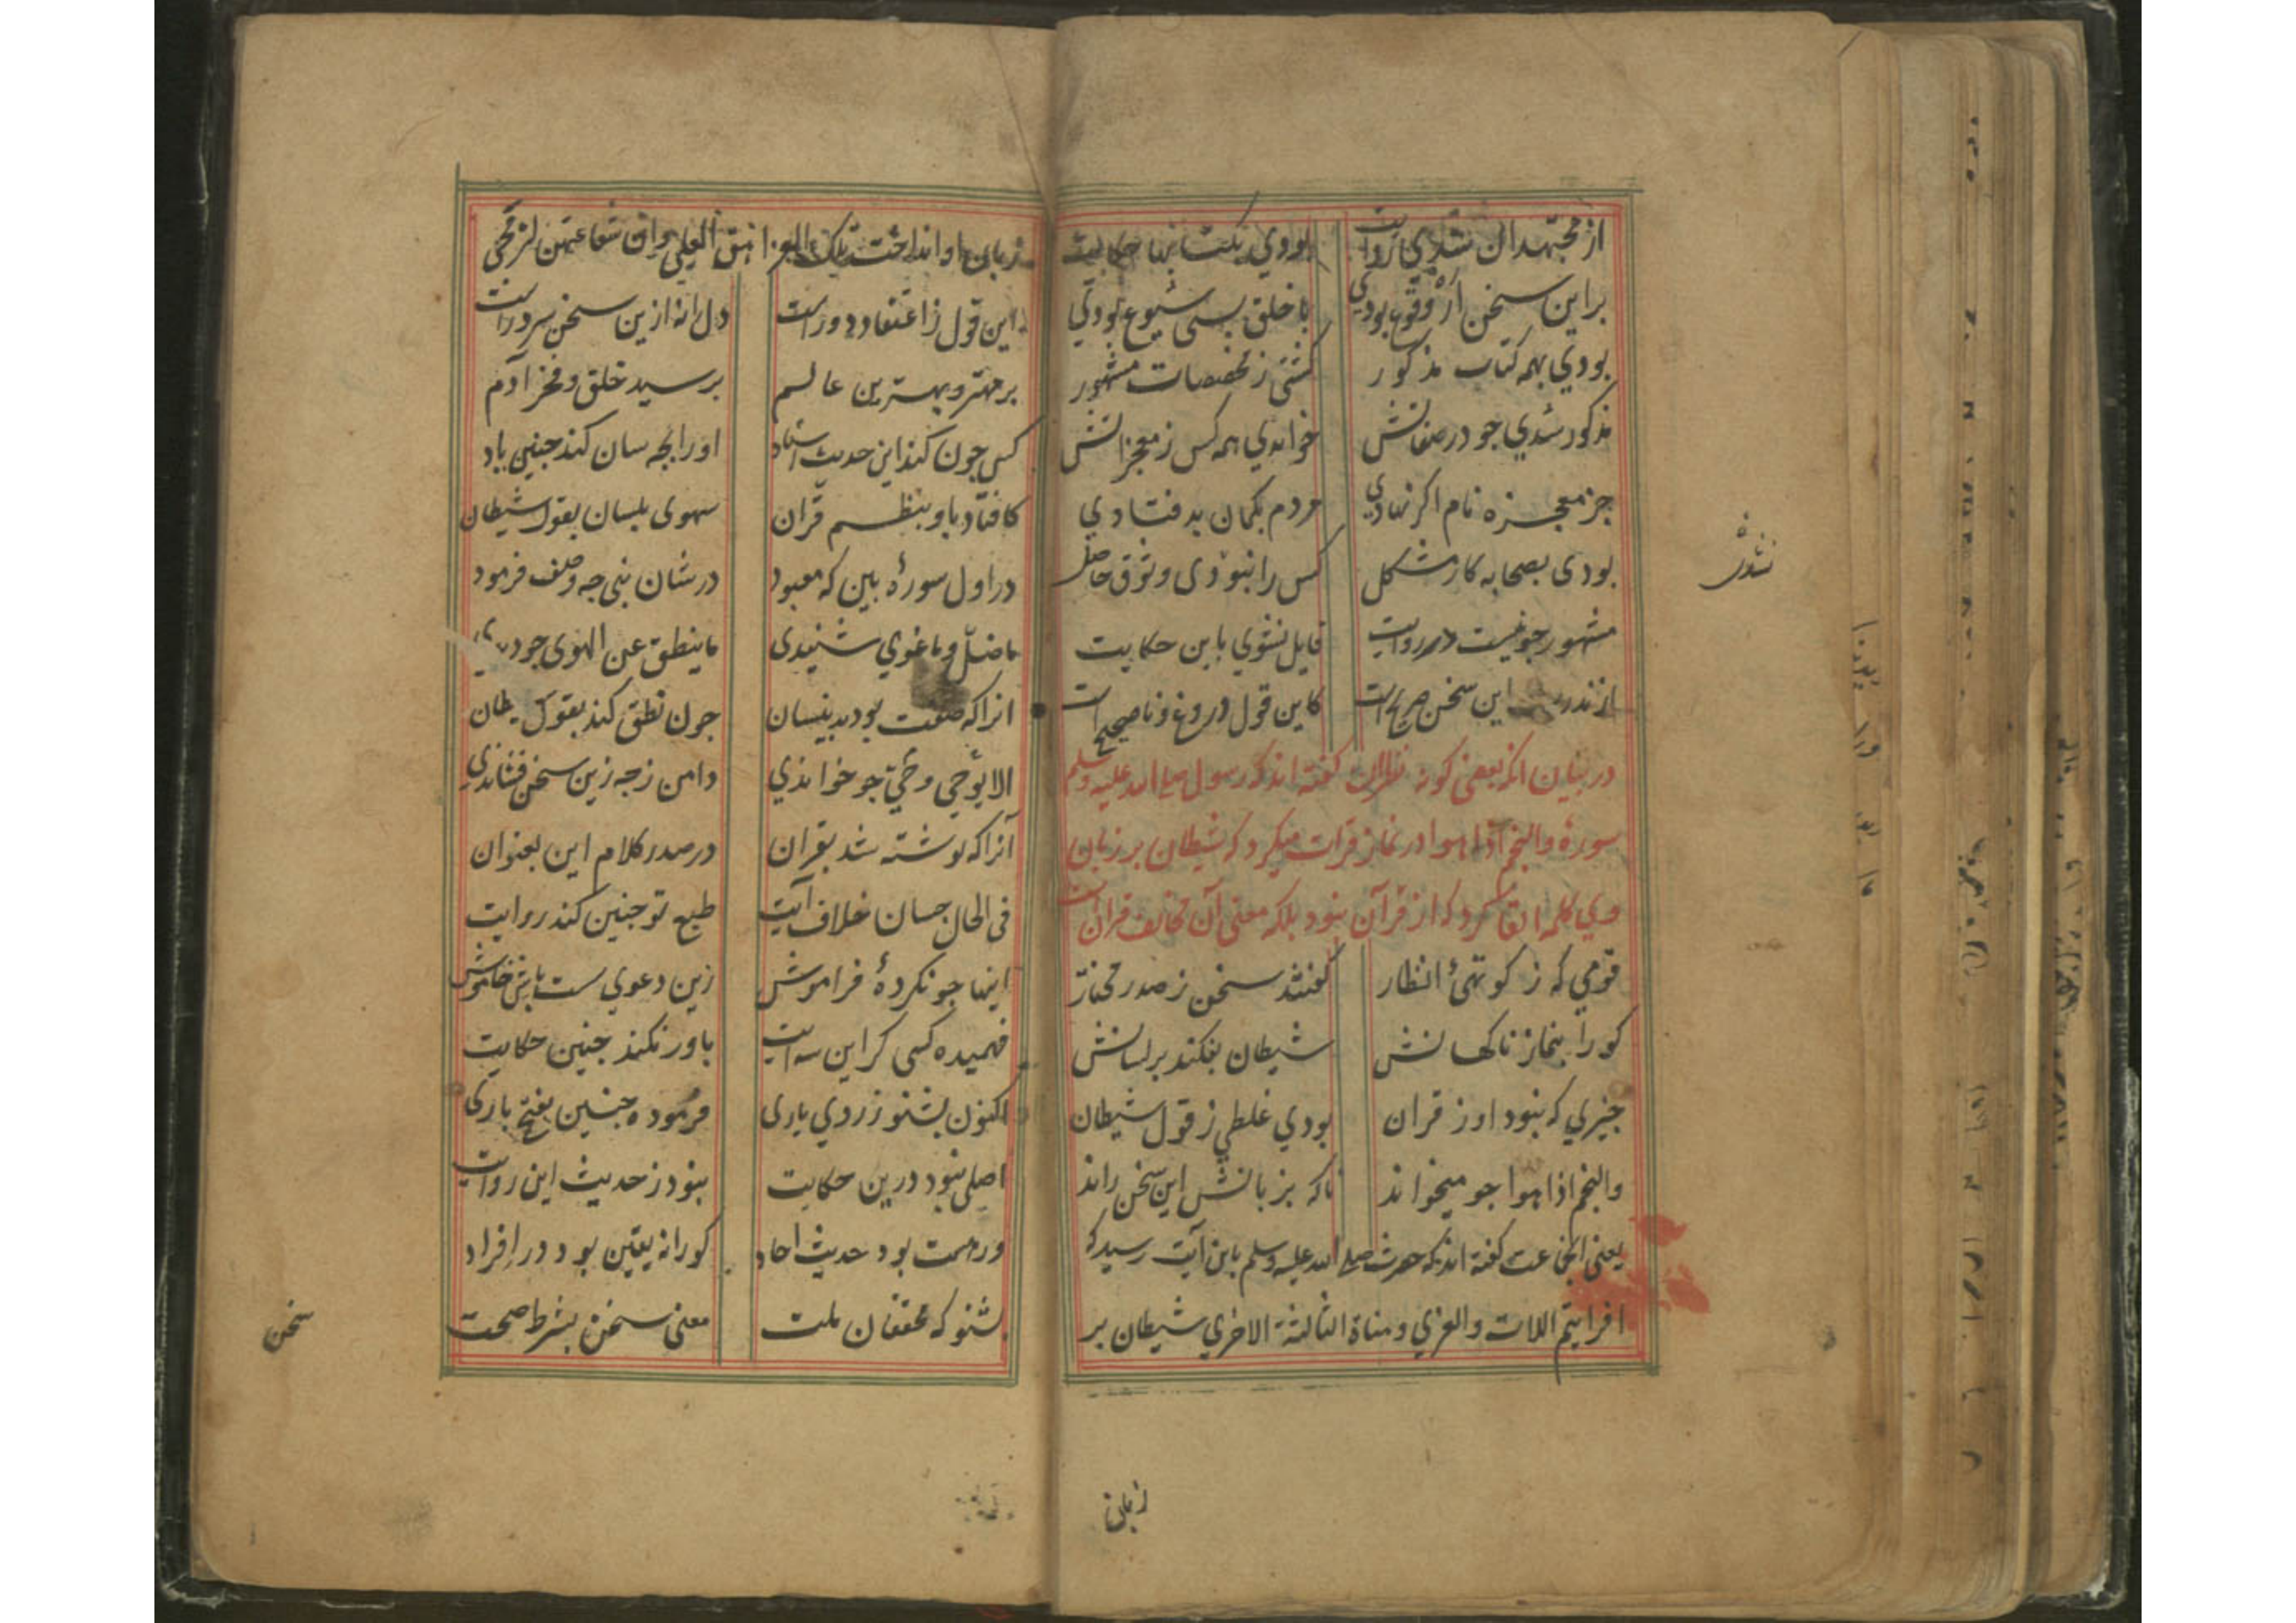 از مجتهدان شدی روایت بودی بکتابها حکایت
بر این سخن ار وقوع بودی با خلق بسی شیوع بودی
بودی بهمه کتاب مذکور کشتی ز مشهور
مذکور شدی جو در صفاتش خواندی همه کس ز معجزاتش
جز معجزه نام اکر نهادی مردم بکمان بد فتادی
بودی بصحابه کار مشکل کس را نبودی وثوق حاصل
مشهور جو نیست در روایت قایل نشوی باین حکایت
این سخن صریح است کاین قول دروغ و ناصحیح است
در بیان انکه بعضی کوته نظران کفته اند که رسول صلی الله علیه وسلم
سورهٔ والنجم اذا هوا در نماز قرات میکرد که شیطان بر زبان
وی کلمه القا کرد که از قرآن نبود بلکه معنی آن مخالف قران است
قومی که ز کوتهئ انظار کفتند سخن ز صدر مختار
کو را بنماز ناکهانش شیطان بفکند بر لسانش
جیزی که نبود او ز قران بودی غلطی ز قول شیطان
والنجم اذا هوا جو میخواند ناکه بزبانش این سخن راند
یعنی انجماعت کفته اند که حضرت صلی الله علیه وسلم باین آیت رسید که
افرایتم اللات والعزی ومناة الثالثة الاخری شیطان بر
زبان
نشدی
زبان او انداخت تلک الغرانیق العلی وان شفاعتهن لترتجی
این قول ز اعتقاد دور است دل رانه ازین سخن سرور است
بر مهتر و بهترین عالم بر سید خلق و فخر آدم
کس جون کند این حدیث اسناد او را بجه سان کند جنین یاد
کافتاد باو بنظم قرآن سهوی بلسان بقول شیطان
در اول سورهٔ بین که معبود در شان نبی جه وصف فرمود
ما ضلّ وما غوی شنیدی ما ینطق عن الهوی جو دیدی
انرا که صفت بود بدینسان جون نطق کند بقول شیطان
الا یوحی وحیٌ جو خواندی دامن ز جه زین سخن فشاندی
آنرا که نوشته شد بقران در صدر کلام این بعنوان
فی الحال جسان خلاف آیت طبع تو جنین کند روایت
اینها جو نکردهٔ فراموش زین دعوی ست باش خاموش
فهمیده کسی کر این سه آیت باور نکند جنین حکایت
اکنون بشنو ز روی یاری فرموده جنین بفتح باری
اصلی نبود درین حکایت نبود ز حدیث این روایت
ور هست بود حدیث احاد کورا نه یقین بود در افراد
بشنو که محققان ملت معنی سخن بشرط صحت
سخن